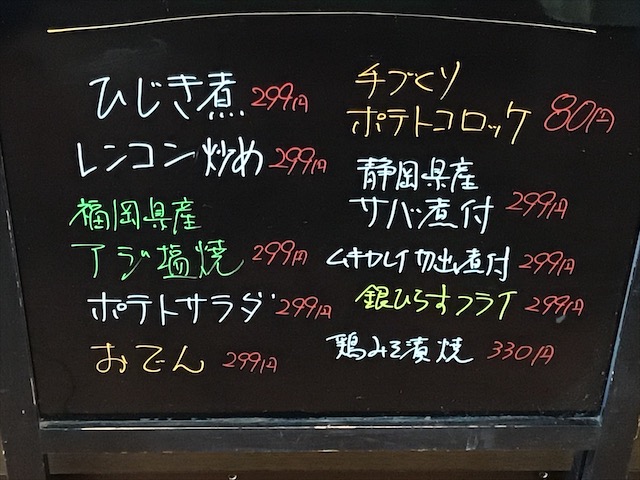 ひじき煮 299円
レンコン炒め 299円
福岡県産
アジ塩焼 299円
ポテトサラダ 299円
おでん 299円
手づくり
ポテトコロッケ 80円
静岡県産
サバ煮付 299円
ムキカレイ切出し煮付 299円
銀ひらすフライ 299円
鶏みそ漬焼 330円